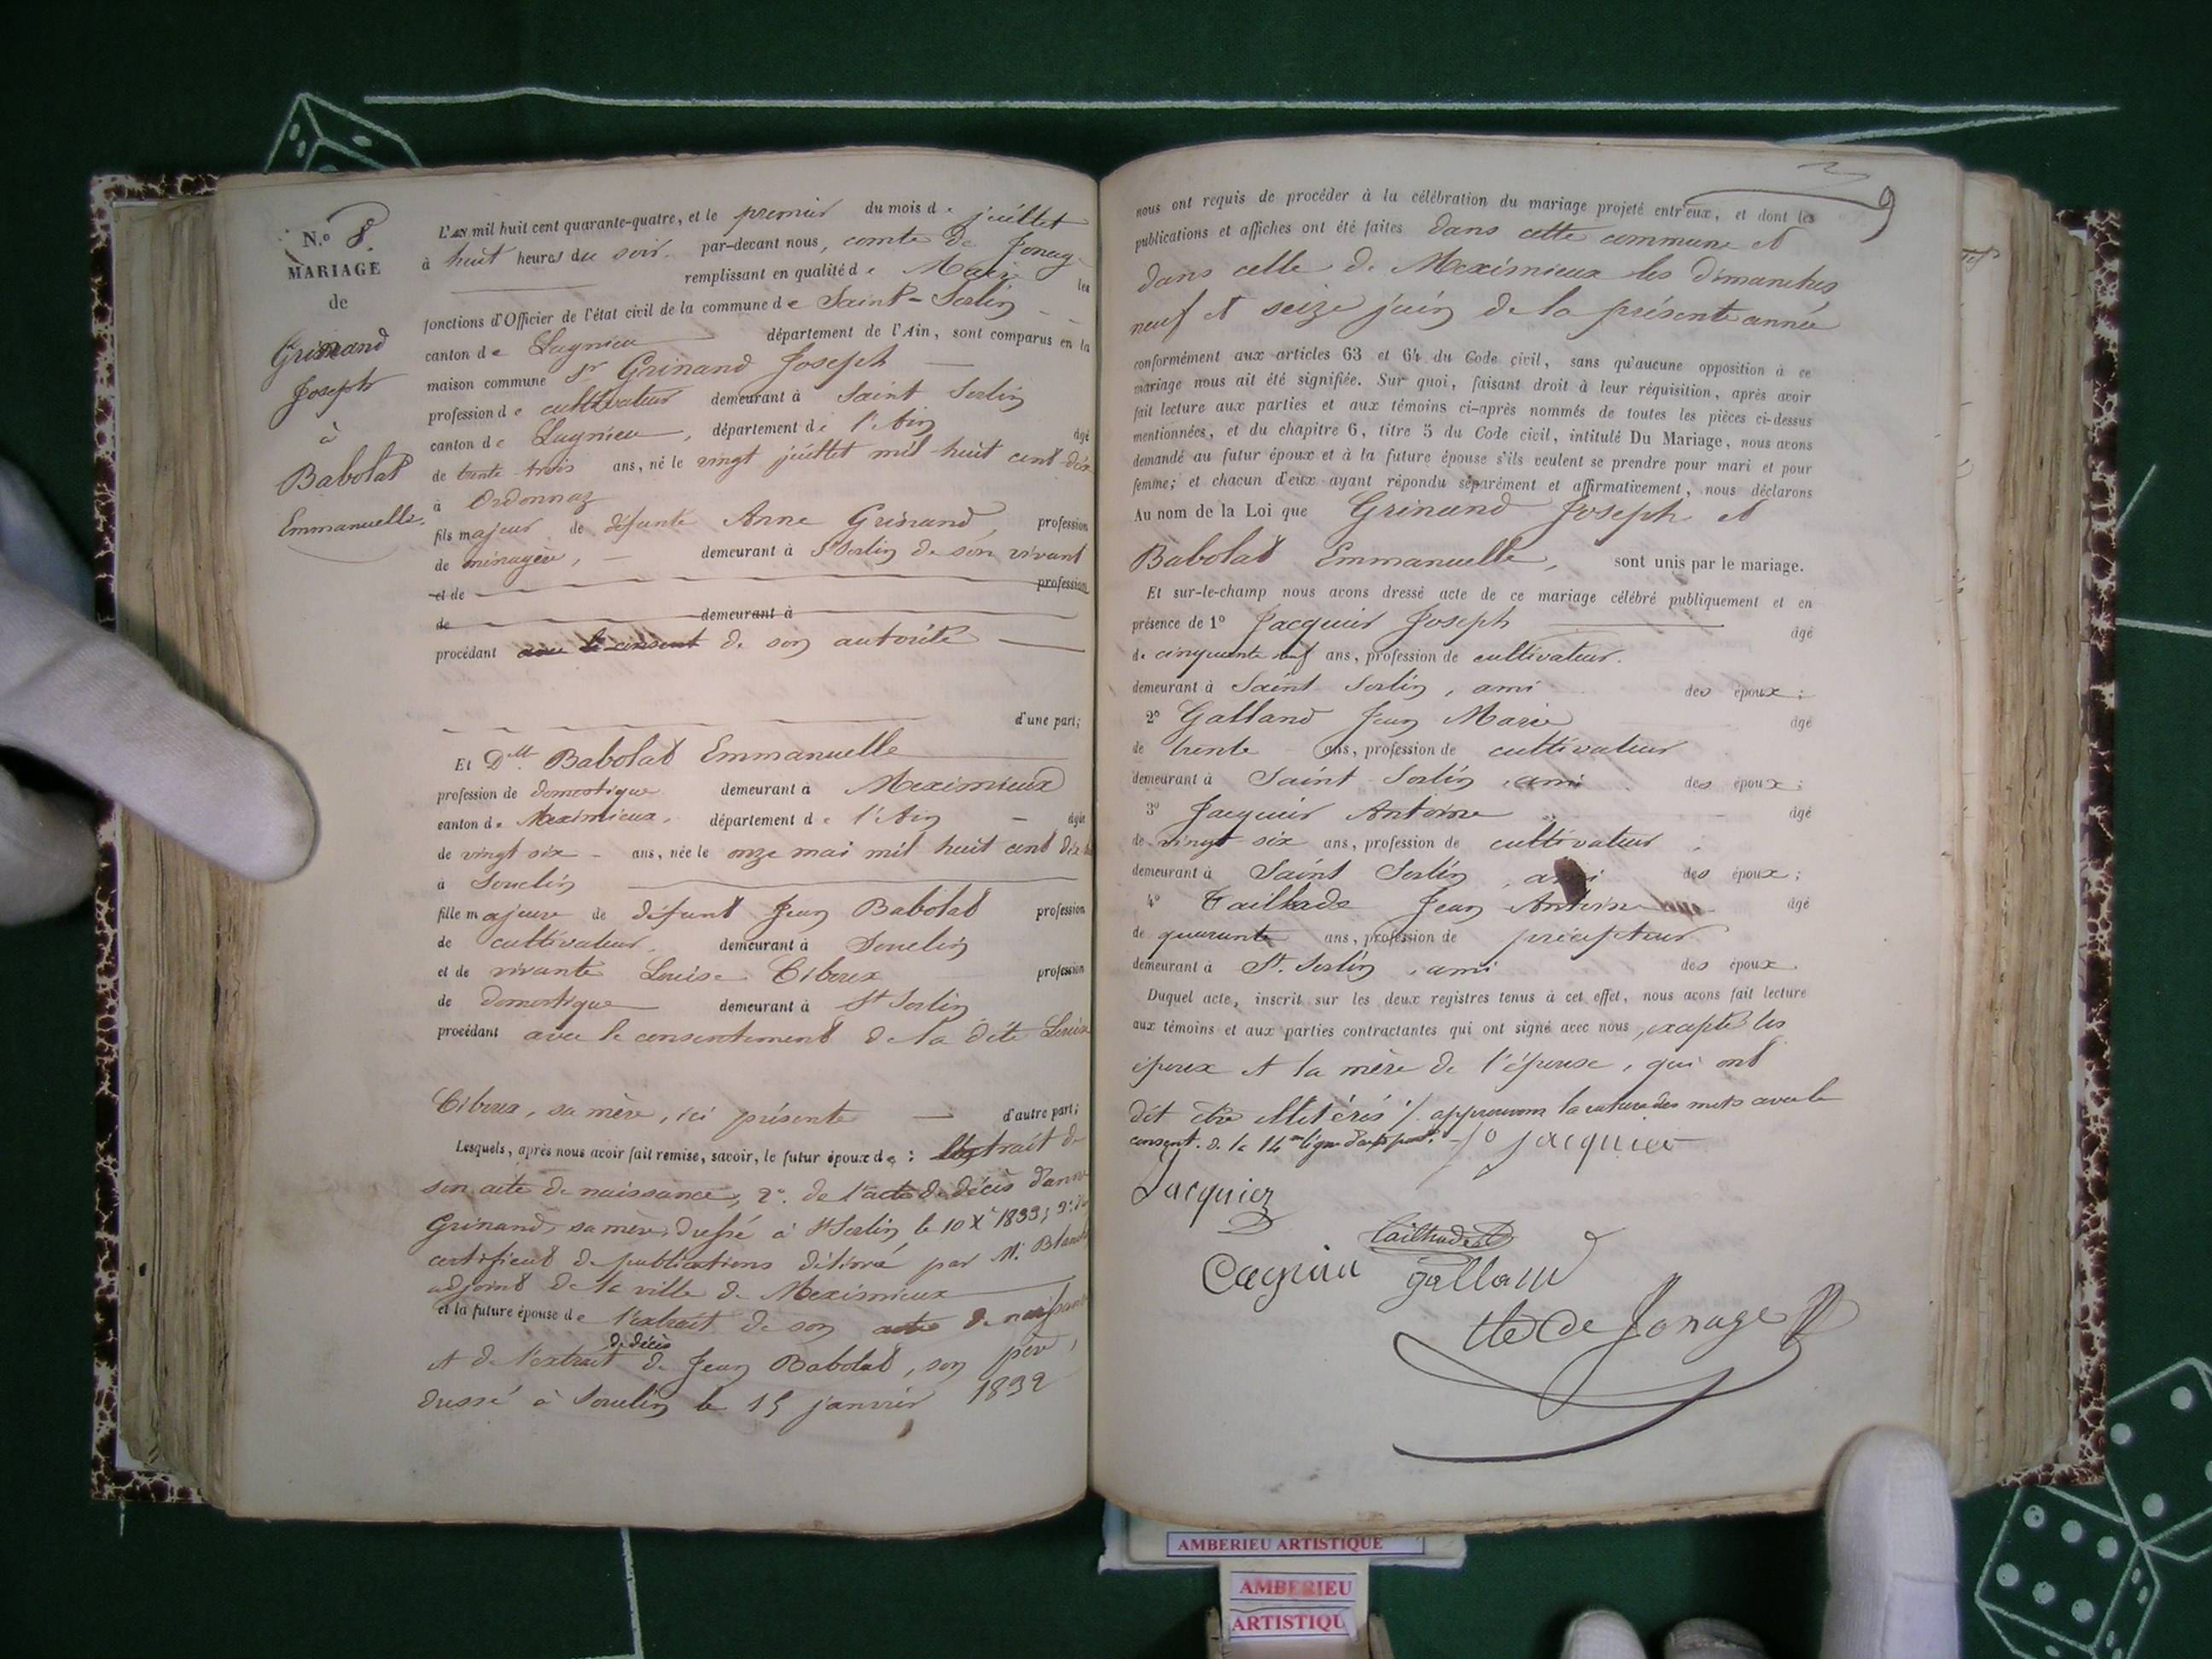 N.o 8.
MARIAGE
de
Grinand
Joseph
à
Babolat
Emmanuelle.
L'AN mil huit cent quarante-quatre, et le premier du mois de juillet
à huit heures du soir. par-devant nous, comte de Jonage
remplissant en qualité de Maire les
fonctions d'Officier de l'état civil de la commune de Saint-Sorlin
canton de Lagnieu département de l'Ain, sont comparus en la
maison commune Sr Grinand Joseph
profession de cultivateur demeurant à Saint Sorlin
canton de Lagnieu, département de l'Ain âgé
de trente trois ans, né le vingt juillet mil huit cent dix
à Ordonnaz
fils majeur de défunte Anne Grinand, profession
de ménagère, demeurant à St Sorlin de son vivant
et de profession
de demeurant à
procédant avec le consent de son autorité
d'une part;
Et Dlle Babolat Emmanuelle
profession de domestique demeurant à Meximieux
canton de Meximieux, département de l'Ain âgée
de vingt six ans, née le onze mai mil huit cent dix
à Souclin
fille majeure de défunt Jean Babolat profession
de cultivateur, demeurant à Souclin
et de vivante Louise Ciboux profession
de domestique demeurant à St Sorlin
procédant avec le consentement de la dite Louise
Ciboux, sa mère, ici présente d'autre part;
Lesquels, après nous avoir fait remise, savoir, le futur époux de : l'extrait de
son acte de naissance, 2o. de l'acte de décès d'anne
Grinand, sa mère, dressé à St Sorlin le 10 Xe 1833;
certificat de publications délivré par M.
adjoint de la ville de Meximieux
et la future épouse de l'extrait de son acte de naissance
de décès
et de l'extrait de Jean Babolat, son père,
dressé à Souclin le 15 janvier 1832
9
nous ont requis de procéder à la célébration du mariage projeté entr'eux, et dont les
publications et affiches ont été faites dans cette commune et
dans celle de Meximieux les dimanches
neuf et seize juin de la présente année
conformément aux articles 63 et 64 du Code civil, sans qu'aucune opposition à ce
mariage nous ait été signifiée. Sur quoi, faisant droit à leur réquisition, après avoir
fait lecture aux parties et aux témoins ci-après nommés de toutes les pièces ci-dessus
mentionnées, et du chapitre 6, titre 5 du Code civil, intitulé Du Mariage, nous avons
demandé au futur époux et à la future épouse s'ils veulent se prendre pour mari et pour
femme; et chacun d'eux ayant répondu séparément et affirmativement, nous déclarons
Au nom de la Loi que Grinand Joseph et
Babolat Emmanuelle, sont unis par le mariage.
Et sur-le-champ nous avons dressé acte de ce mariage célébré publiquement et en
présence de 1o Jacquier Joseph âgé
de cinquante neuf ans, profession de cultivateur.
demeurant à Saint Sorlin, ami des époux;
2o Galland Jean Marie âgé
de trente ans, profession de cultivateur
demeurant à Saint Sorlin, ami des époux;
3o Jacquier Antoine âgé
de vingt six ans, profession de cultivateur
demeurant à Saint Sorlin, ami des époux;
4o Tailhade Jean Antoine âgé
de quarante ans, profession de précepteur
demeurant à St. Sorlin, ami des époux.
Duquel acte, inscrit sur les deux registres tenus à cet effet, nous avons fait lecture
aux témoins et aux parties contractantes qui ont signé avec nous, excepté les
époux et la mère de l'épouse, qui ont
dit être illitérés ./. approuvons la rature des mots avec le
consent. de la 14me ligne Jo jacquier
Jacquier
Tailhade
galland
Cte de Jonage
AMBERIEU ARTISTIQUE
AMBERIEU
ARTISTIQU